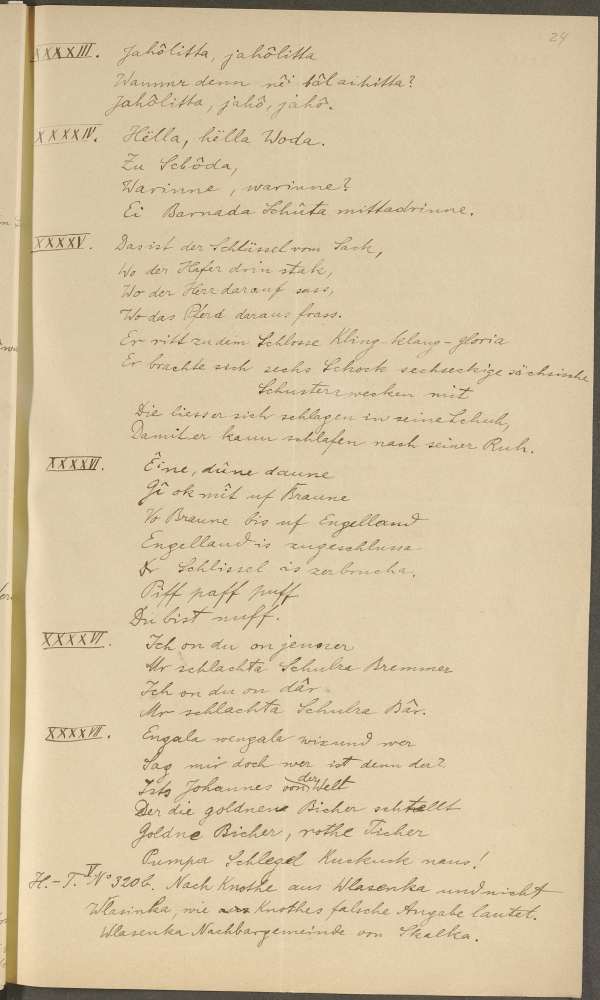 24
XXXXIII. Jahôlitta, jahôlitta
Wammr denn nêi tôl aihitta?
Jahôlitta, jahô, jahô.
XXXXIV. Hëlla, hëlla Woda.
Zu Schôda,
Warinne, warinne?
Ei Barnada Schûta mittadrinne.
XXXXV. Das ist der Schlüssel vom Sack,
Wo der Hafer drin stak,
Wo der Herr darauf sass,
Wo das Pferd daraus frass.
Er ritt zu dem Schlosse Kling-klang-gloria
Er brachte sich sechs Schock sechseckige sächsische
Schusterzwecken mit
Die liess er sich schlagen in seine Schuh,
Damit er kann schlafen nach seiner Ruh.
XXXXVI. Êine, dûne daune
Gî ok mît uf Braune
Vo Braune bis uf Engelland
Engelland is zugeschlussa
Dr Schlissel is zerbrucha.
Piff paff puff
Du bist nuff.
XXXXVI. Ich on du on jenner
Mr schlachta Schulza Bremmer
Ich on du on dâr
Mr schlachta Schulza Bâr.
XXXXVII. Engala wengala wixund wer
Sag mir doch wer ist denn der?
Ists Johannes von der Welt
Der die goldnene Bicher schtellt
Goldne Bicher, rothe Ticher
Pumpa Schlegel Kuckuck naus!
H.-T. V No 320b. Nach Knothe aus Wlasenka und nicht
Wlasinka, wie Knothes falsche Angabe lautet.
Wlasenka Nachbargemeinde von Skalka.